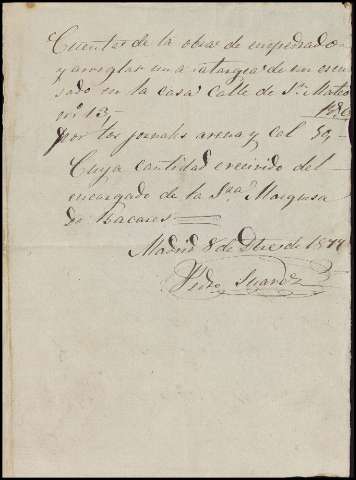 Cuenta de la obra de empedrado
y arreglar una atargea de un escu
sado en la casa Calle de Sn. Mateo
nº 13,
por los jornales arena y cal 59,
Cuya cantidad e recivido del
encargado de la Sra. Marquesa
de Bacares
Madrid 8 de Dbre de 1877
Pedro Suarez